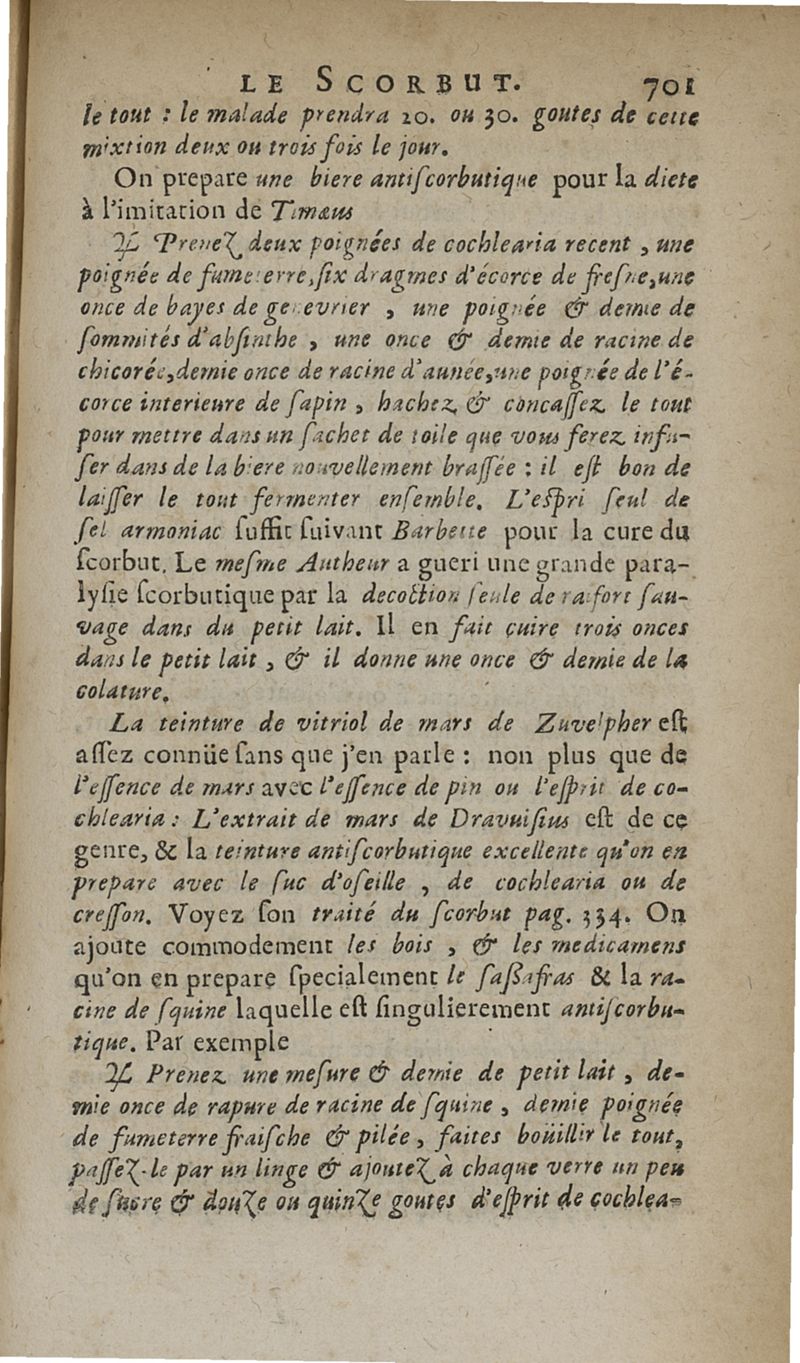 LE SCORBUT. 701
le tout : le malade prendra 20. ou 30. goutes de cette
mixtion deux ou trois fois le jour.
On prepare une biere antiſcorbutique pour la diete
à l'imitation de Timæus
♃ Prenez deux poignées de cochlearia recent , une
poignée de fumeterre, ſix dragmes d'écorce de freſne, une
once de bayes de genevrier , une poignée & demie de
ſommités d'abſinthe , une once & demie de racine de
chicorée, demie once de racine d'aunée, une poignée de l'é-
corce interieure de ſapin , hachez, & concaſſez le tout
pour mettre dans un ſachet de toile que vous ferez infu-
ſer dans de la biere nouvellement braſſée : il eſt bon de
laiſſer le tout fermenter enſemble. L'eſpri ſeul de
ſel armoniac ſuffit ſuivant Barbette pour la cure du
ſcorbut. Le meſme Autheur a gueri une grande para-
lyſie ſcorbutique par la decoction ſeule de raifort ſau-
vage dans du petit lait. Il en fait cuire trois onces
dans le petit lait , & il donne une once & demie de la
colature.
La teinture de vitriol de mars de Zuvelpher eſt
aſſez connüe ſans que j'en parle : non plus que de
l'eſſence de mars avec l'eſſence de pin ou l'eſprit de co-
chlearia : L'extrait de mars de Dravuiſius eſt de ce
genre, & la teinture antiſcorbutique excellente qu'on en
prepare avec le ſuc d'oſeille , de cochlearia ou de
creſſon. Voyez ſon traité du ſcorbut pag. 334. On
ajoute commodement les bois , & les medicamens
qu'on en prepare ſpecialement le ſaſſafras & la ra-
cine de ſquine laquelle eſt ſingulierement antiſcorbu-
tique. Par exemple
♃ Prenez une meſure & demie de petit lait , de-
mie once de rapure de racine de ſquine , demie poignée
de fumeterre fraiſche & pilée , faites boüillir le tout,
paſſez-le par un linge & ajoutez à chaque verre un peu
de ſucre & douze ou quinze goutes d'eſprit de cochlea-